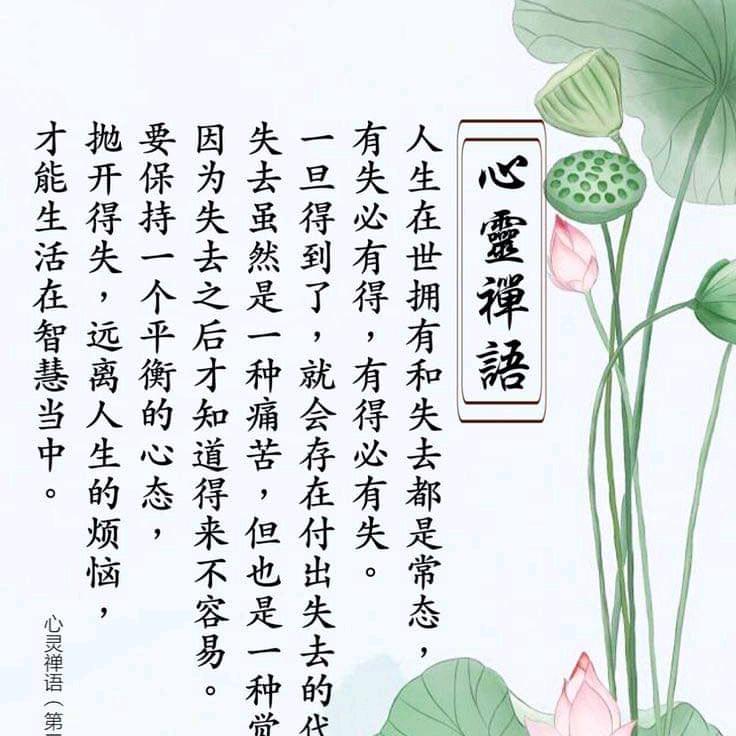 心靈禪語
人生在世拥有和失去都是常态，
有失必有得，有得必有失。
一旦得到了，就会存在付出失去的代
失去虽然是一种痛苦，但也是一种觉
因为失去之后才知道得来不容易。
要保持一个平衡的心态，
抛开得失，远离人生的烦恼，
才能生活在智慧当中。
心灵禅语（第